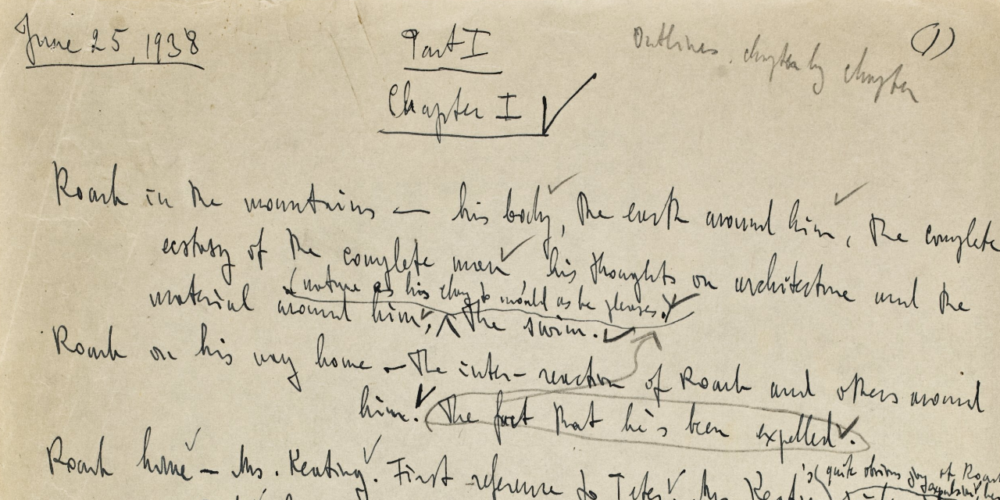 June 25, 1938
Part I
Outlines, chapter by chapter
(1)
Chapter I
Roark in the mountains — his body, the earth around him, the complete
ecstasy of the complete man his thoughts on architecture and the
(nature as his clay to mould as he pleases.)
material around him, the swim.
Roark on his way home — The inter-reaction of Roark and others around
him. The fact that he's been expelled.
's quite obvious joy at Roark's
expulsion
Roark home — Mrs. Keating. First reference to Peter. Mrs. Keating